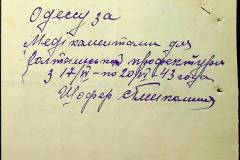 Одессу за
Медикаментами для
Голтянской профектури
з 17/III - по 20/III - 43 года
Шофер